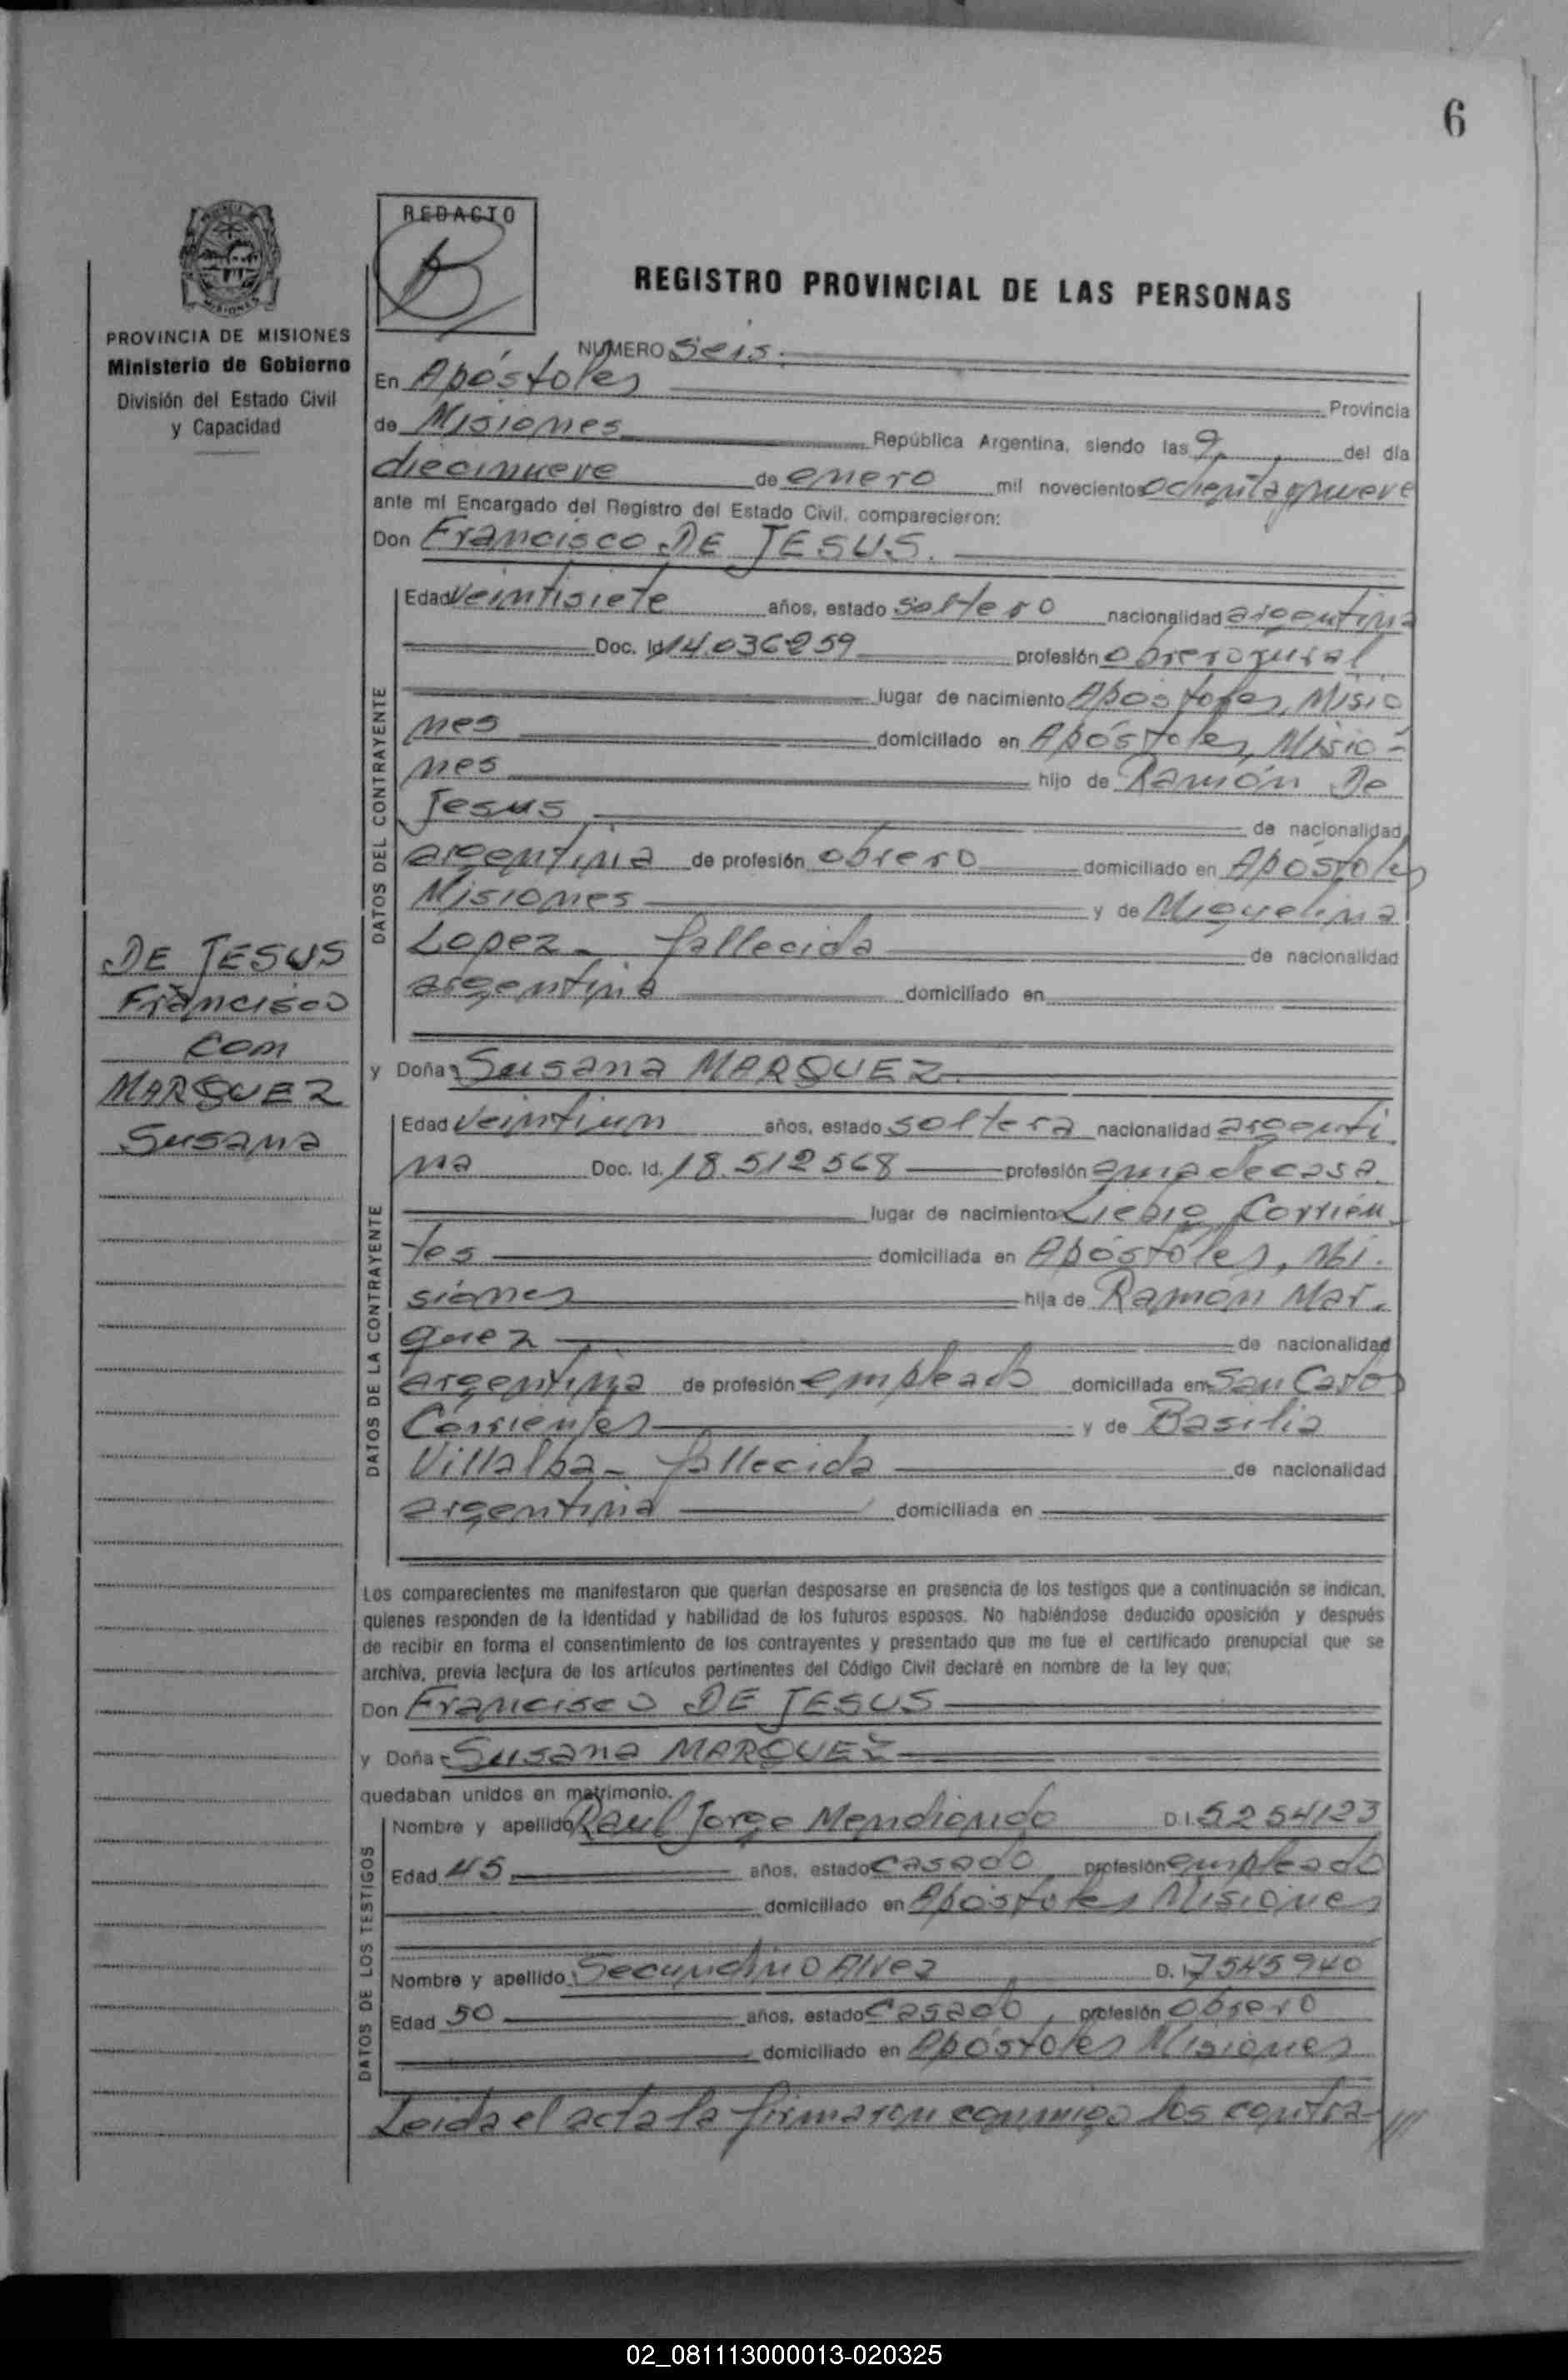 6
REDACTO
REGISTRO PROVINCIAL DE LAS PERSONAS
PROVINCIA DE MISIONES
Ministerio de Gobierno
División del Estado Civil
y Capacidad
NUMERO Seis.
En Apóstoles Provincia
de Misiones República Argentina, siendo las 9, del día
diecinueve de enero mil novecientos ochenta y nueve
ante mi Encargado del Registro del Estado Civil, comparecieron:
Don Francisco DE JESUS.
DATOS DEL CONTRAYENTE
Edad Veintisiete años, estado soltero nacionalidad argentina
Doc. Id 14.036259 profesión obrero rural
lugar de nacimiento Apóstoles, Misio
nes domiciliado en Apóstoles, Misio-
nes hijo de Ramón De
Jesus de nacionalidad
argentina de profesión obrero domiciliado en Apóstoles
Misiones y de Miguelina
Lopez - fallecida de nacionalidad
argentina domiciliado en
DE JESUS
Francisco
con
MARQUEZ
Susana
y Doña Susana MARQUEZ.
DATOS DE LA CONTRAYENTE
Edad Veintiun años, estado soltera nacionalidad argenti
na Doc. Id. 18.512568 profesión ama de casa.
lugar de nacimiento Liebig, Corrien
tes domiciliada en Apóstoles, Mi.
siones hija de Ramón Mar.
quez de nacionalidad
argentina de profesión empleado domiciliada en San Carlos
Corrientes y de Basilia
Villalba - fallecida de nacionalidad
argentina domiciliada en
Los comparecientes me manifestaron que querían desposarse en presencia de los testigos que a continuación se indican,
quienes responden de la identidad y habilidad de los futuros esposos. No habiéndose deducido oposición y después
de recibir en forma el consentimiento de los contrayentes y presentado que me fue el certificado prenupcial que se
archiva, previa lectura de los artículos pertinentes del Código Civil declaré en nombre de la ley que:
Don Francisco DE JESUS
y Doña Susana MARQUEZ
quedaban unidos en matrimonio.
DATOS DE LOS TESTIGOS
Nombre y apellido Raul Jorge Mendiondo D.I. 5254123
Edad 45 años, estado casado profesión empleado
domiciliado en Apóstoles Misiones
Nombre y apellido Secundino Alvez D. I 7545940
Edad 50 años, estado casado, profesión obrero
domiciliado en Apóstoles Misiones
Leida el acta la firmaron conmigo los contra-///
02_081113000013-020325